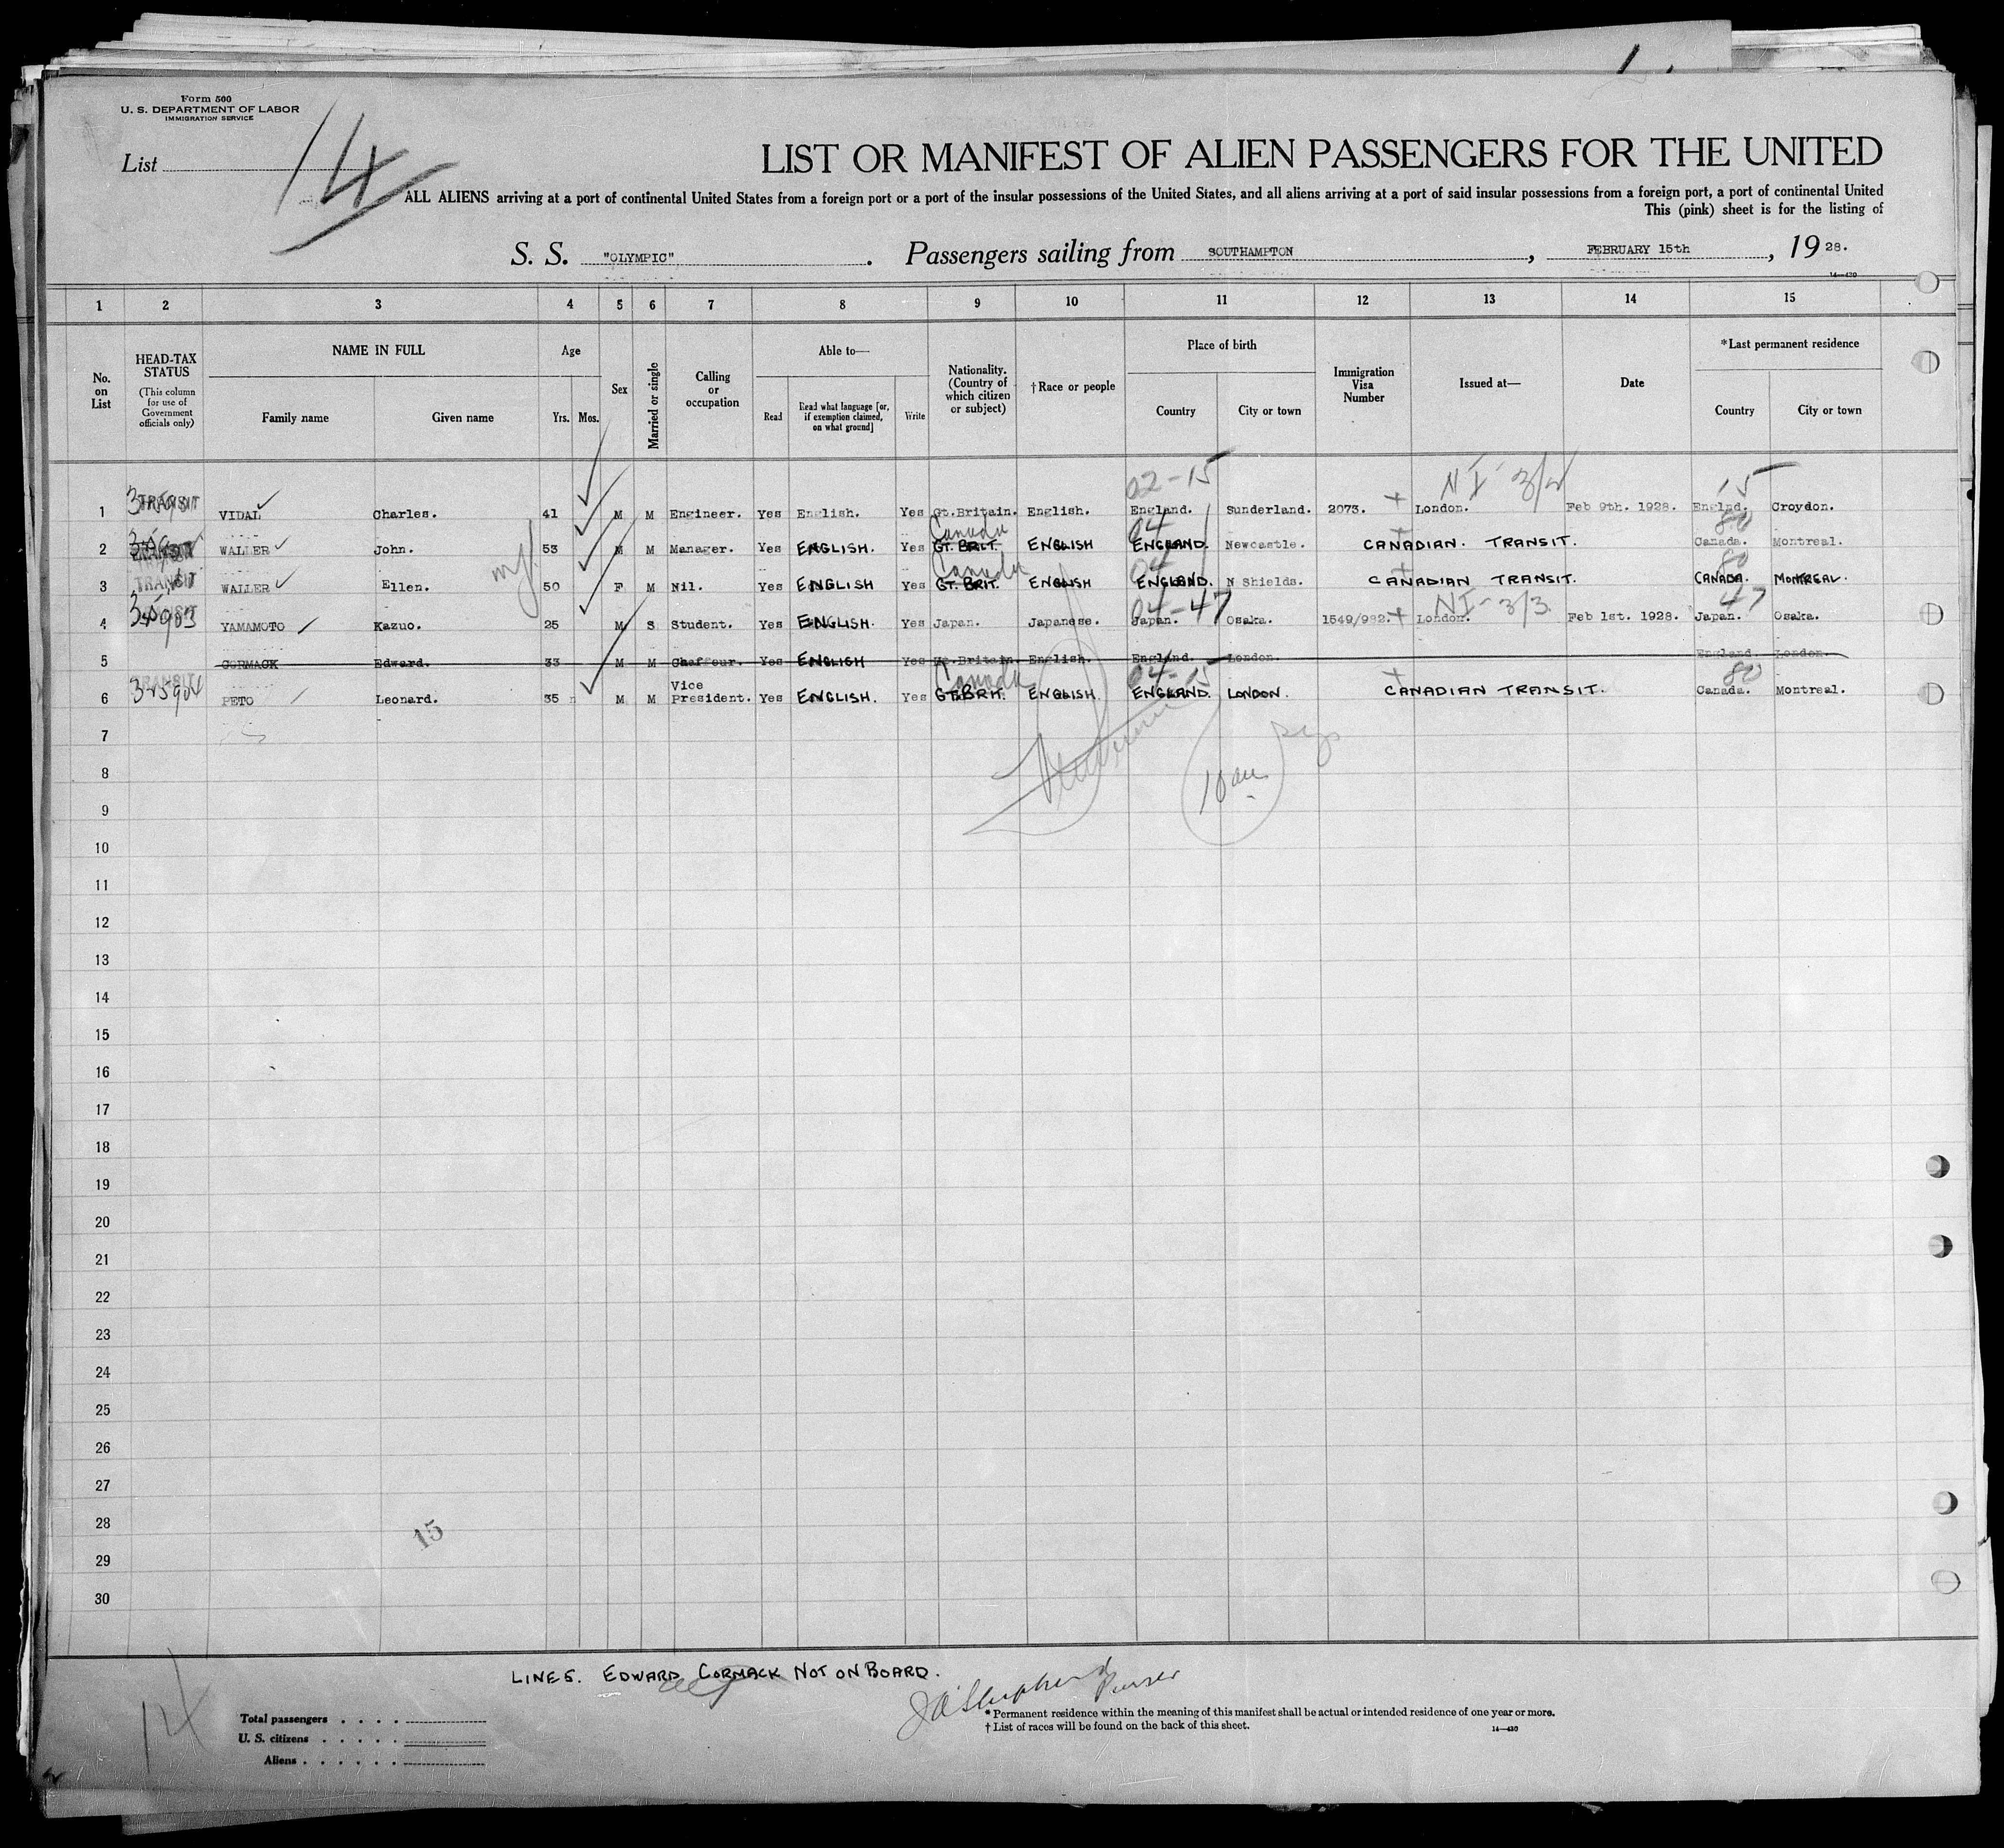 Form 500
U. S. DEPARTMENT OF LABOR
IMMIGRATION SERVICE
List 14
LIST OR MANIFEST OF ALIEN PASSENGERS FOR THE UNITED
ALL ALIENS arriving at a port of continental United States from a foreign port or a port of the insular possessions of the United States, and all aliens arriving at a port of said insular possessions from a foreign port, a port of continental United
This (pink) sheet is for the listing of
S. S. "OLYMPIC" . Passengers sailing from SOUTHAMPTON , FEBRUARY 15th , 19 28.
14—430
1 2 3 4 5 6 7 8 9 10 11 12 13 14 15
No. on List
HEAD-TAX STATUS (This column for use of Government officials only)
NAME IN FULL
Family name Given name
Age
Yrs. Mos.
Sex
Married or single
Calling or occupation
Able to—
Read
Read what language [or, if exemption claimed, on what ground]
Write
Nationality. (Country of which citizen or subject)
†Race or people
Place of birth
Country City or town
Immigration Visa Number
Issued at—
Date
*Last permanent residence
Country City or town
02-15 NI 15
1 TRANSIT VIDAL Charles. 41 M M Engineer. Yes English. Yes Gt.Britain. English. England. Sunderland. 2073. London. Feb 9th. 1928. Englnd. Croydon.
Canada 04 80
2 TRANSIT WALLER John. 53 M M Manager. Yes ENGLISH. Yes GT. BRIT. ENGLISH ENGLAND. Newcastle. CANADIAN. TRANSIT. Canada. Montreal.
Canada 04 80
3 TRANSIT WALLER Ellen. 50 F M Nil. Yes ENGLISH Yes GT. BRIT. ENGLISH ENGLAND. N Shields. CANADIAN TRANSIT. CANADA. MONTREAL.
04-47 NI-3/3 47
4 YAMAMOTO Kazuo. 25 M S Student. Yes ENGLISH. Yes Japan. Japanese. Japan. Osaka. 1549/982. London. Feb 1st. 1928. Japan. Osaka.
5 CORMACK Edward. 33 M M Chaffour. Yes ENGLISH Yes Gt.Britain. English. England. London. England. London.
Canada 04-15 80
6 TRANSIT 325904 PETO Leonard. 35 M M Vice President. Yes ENGLISH. Yes GT.BRIT. ENGLISH. ENGLAND. LONDON. CANADIAN TRANSIT. Canada. Montreal.
7
8
9
10
11
12
13
14
15
16
17
18
19
20
21
22
23
24
25
26
27
28
15
29
30
LINE 5. EDWARD CORMACK NOT ON BOARD.
Purser
14
Total passengers
U. S. citizens
Aliens
* Permanent residence within the meaning of this manifest shall be actual or intended residence of one year or more.
† List of races will be found on the back of this sheet.
14—430